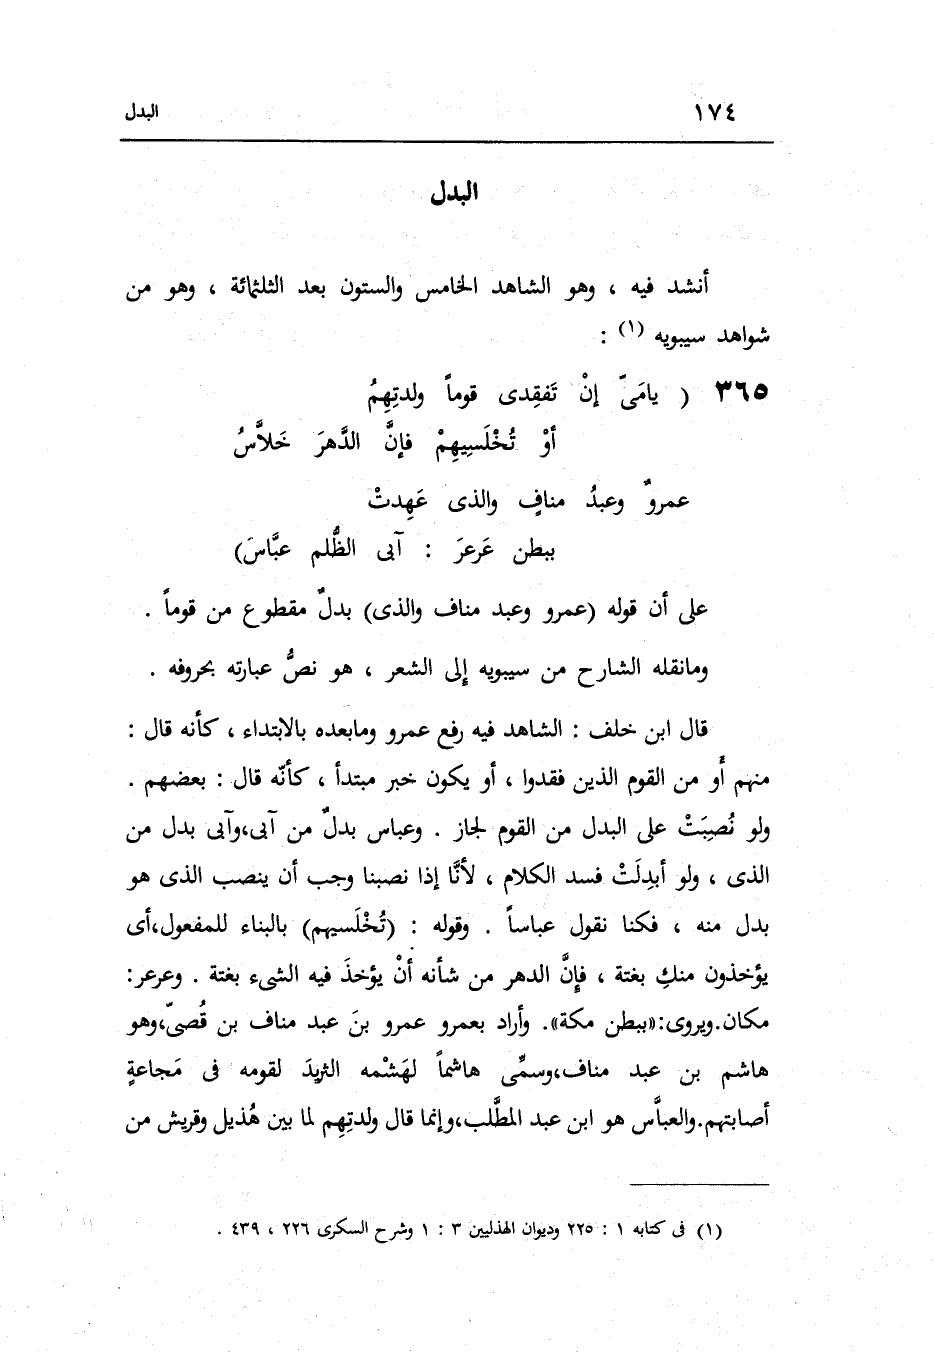 ١٧٤ البدل
البدل
أنشد فيه ، وهو الشاهد الخامس والستون بعد الثلثمائة ، وهو من
شواهد سيبويه (١) :
٣٦٥ ( يامَىّ إنْ تَفقِدى قوماً ولدتِهِمُ
أوْ تُخْلَسِيهِمْ فإنَّ الدَّهرَ خَلاَّسُ
عمروٌ وعبدُ منافٍ والذى عَهِدتْ
ببطن عَرعرَ : آبى الظُّلم عبَّاسَ)
على أن قوله (عمرو وعبد مناف والذى) بدلٌ مقطوع من قوماً .
ومانقله الشارح من سيبويه إلى الشعر ، هو نصُّ عبارته بحروفه .
قال ابن خلف : الشاهد فيه رفع عمرو ومابعده بالابتداء ، كأنه قال :
منهم أو من القوم الذين فقدوا ، أو يكون خبر مبتدأ ، كأنّه قال : بعضهم .
ولو نُصِبَتْ على البدل من القوم لجاز . وعباس بدلٌ من آبى،وآبى بدل من
الذى ، ولو أبدِلَتْ فسد الكلام ، لأنَّا إذا نصبنا وجب أن ينصب الذى هو
بدل منه ، فكنا نقول عباساً . وقوله : (تُخْلَسيهم) بالبناء للمفعول،أى
يؤخذون منكِ بغتة ، فإنَّ الدهر من شأنه أنْ يؤخذَ فيه الشىء بغتة . وعرعر:
مكان.ويروى:«ببطن مكة». وأراد بعمرو عمرو بنَ عبد مناف بن قُصىّ،وهو
هاشم بن عبد مناف،وسمِّى هاشماً لهَشْمه الثريدَ لقومه فى مَجاعةٍ
أصابتهم.والعبَّاس هو ابن عبد المطَّلب،وإنما قال ولدتِهِم لما بين هُذيل وقريش من
(١) فى كتابه ١ : ٢٢٥ وديوان الهذليين ٣ : ١ وشرح السكرى ٢٢٦ ، ٤٣٩ .